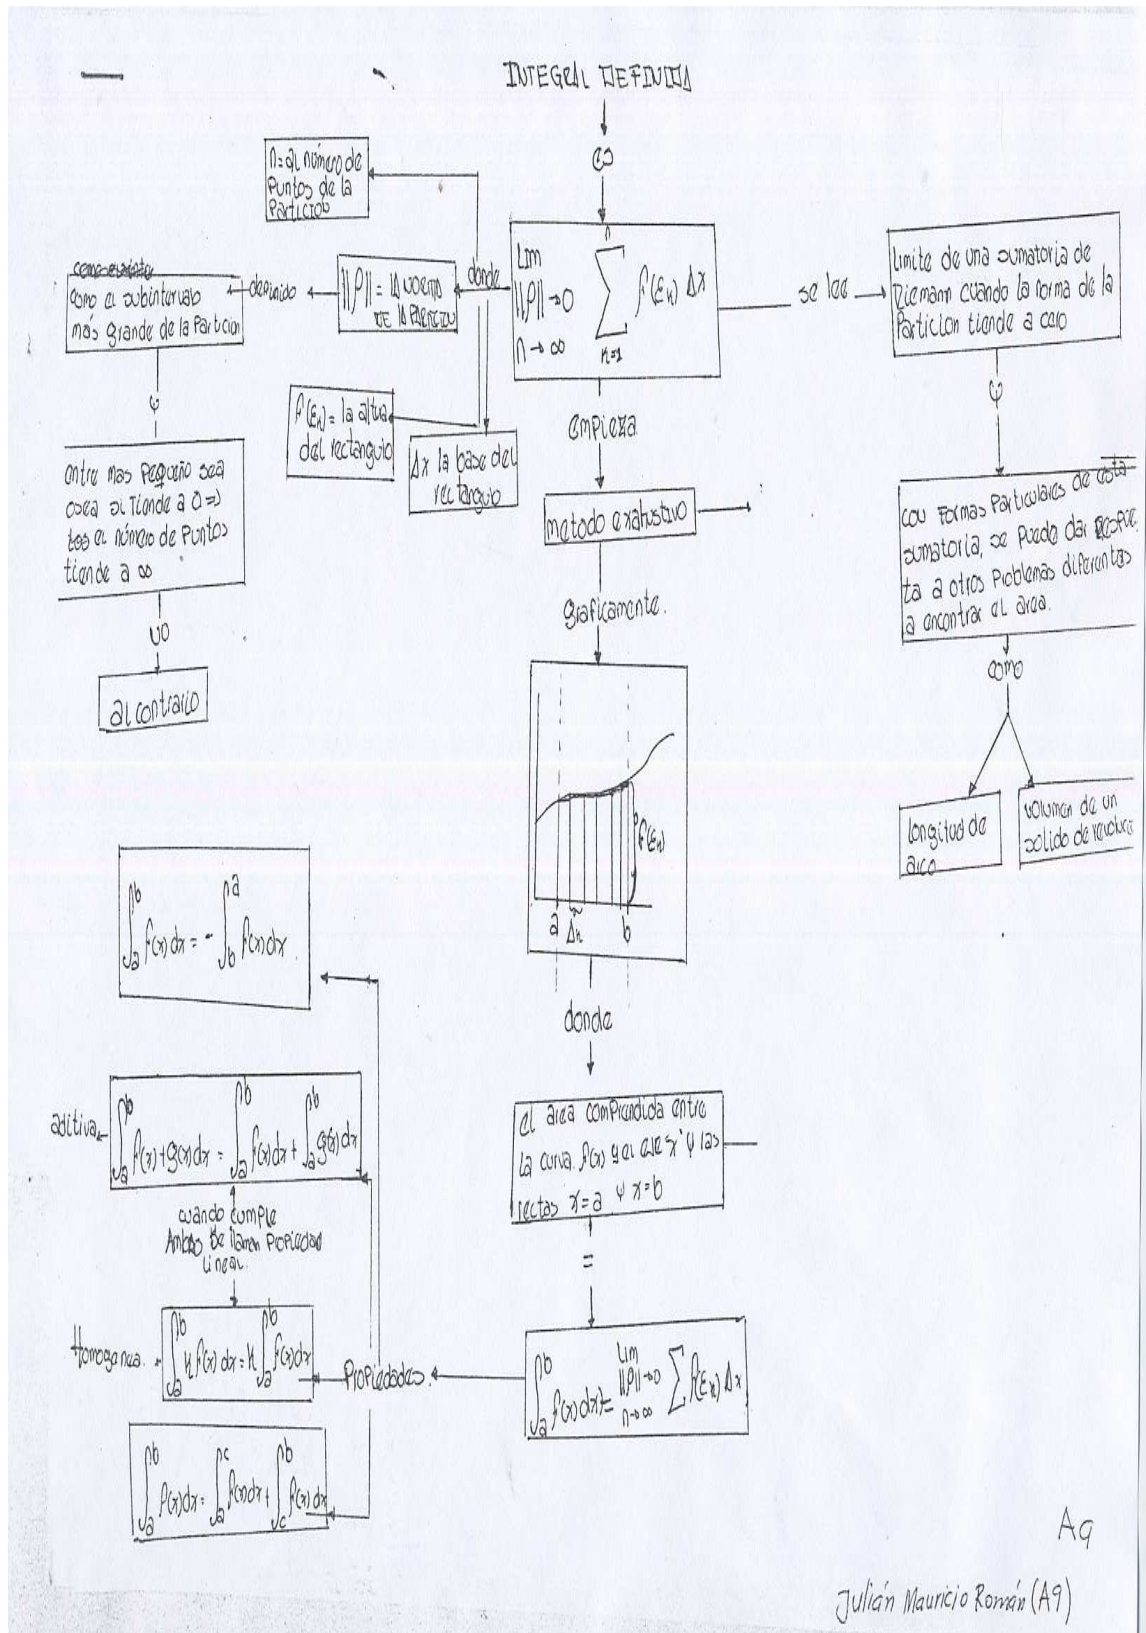 INTEGRAL DEFINIDA
es
n = al número de
puntos de la
Partición
Lim
||P|| → 0
n → ∞
n
∑
k=1
f(Ek) Δx
donde
||P|| = la norma
de la partición
definido
como el subintervalo
más grande de la Partición
y
entre mas pequeño sea
osea si tiende a 0 =>
el número de Puntos
tiende a ∞
no
al contrario
f(Ek) = la altura
del rectangulo
Δx la base del
rectangulo
se lee
limite de una sumatoria de
Riemann cuando la norma de la
Particion tiende a cero
y
con Formas Particulares de esta
sumatoria, se puede dar respues
ta a otros Problemas diferentes
a encontrar el area.
como
longitud de
arco
volumen de un
solido de revoluci
empieza
metodo exahustivo
graficamente.
f(Ek)
a Δk b
donde
el area comprendida entre
la curva f(x) y el eje "x" y las
rectas x=a y x=b
=
∫ₐᵇ f(x)dx = Lim ||P||→0 n→∞ ∑ f(Ek) Δx
Propiedades.
∫ₐᵇ f(x)dx = - ∫ᵇᵃ f(x)dx.
aditiva
∫ₐᵇ f(x)+g(x)dx = ∫ₐᵇ f(x)dx + ∫ₐᵇ g(x)dx
cuando cumple
Ambas se llaman Propiedad
Lineal.
Homogenea.
∫ₐᵇ k f(x)dx = k ∫ₐᵇ f(x)dx
∫ₐᵇ f(x)dx = ∫ₐᶜ f(x)dx + ∫꜀ᵇ f(x)dx
A9
Julián Mauricio Román (A9)